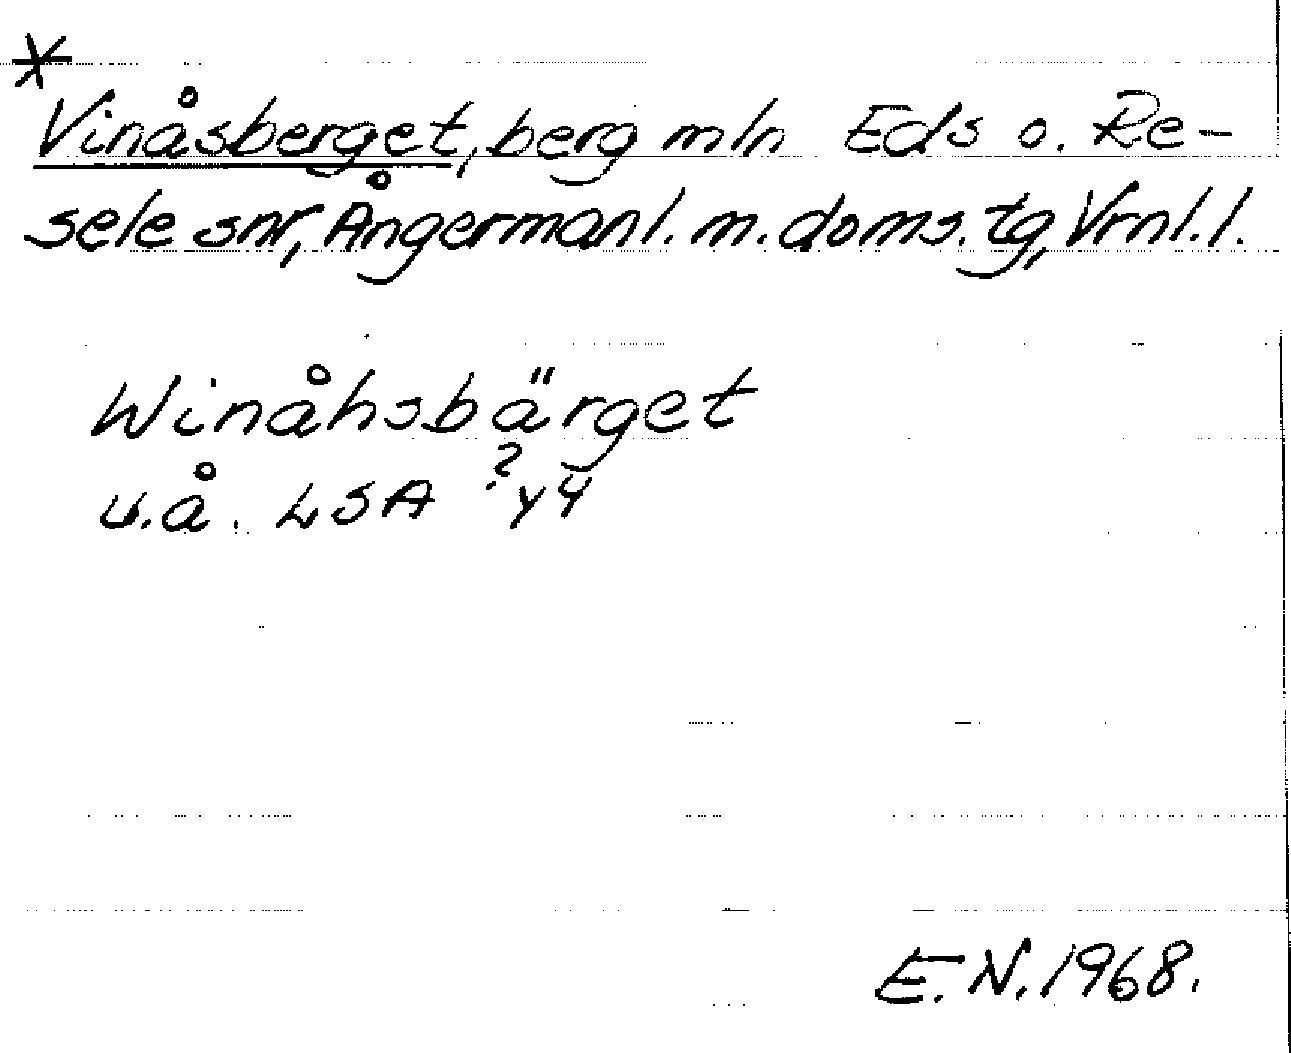 *
Vinåsberget, berg mln Eds o. Re-
sele snr, Ångermanl. m. doms. tg, Vrnl. l.
Winåhsbärget
u.å. LSA ? y4
E.N. 1968.